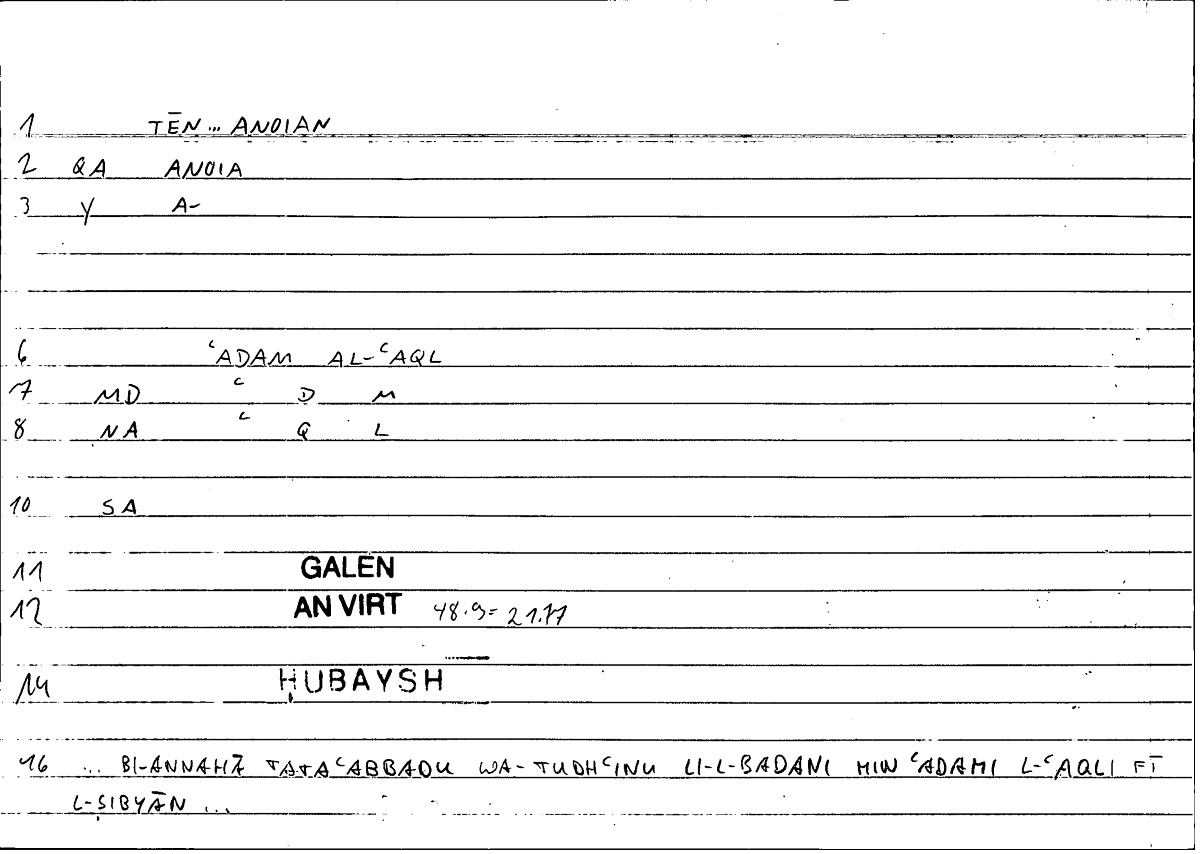 1 TĒN... ANOIAN
2 QA ANOIA
3 Y A-
6 ʿADAM AL-ʿAQL
7 MD ʿ D M
8 NA ʿ Q L
10 SA
11 GALEN
12 AN VIRT 48.9= 21.17
14 ḤUBAYSH
16 ... BI-ANNAHĀ TATAʿABBADU WA-TUDHʿINU LI-L-BADANI MIN ʿADAMI L-ʿAQLI FĪ
L-ṢIBYĀN ...